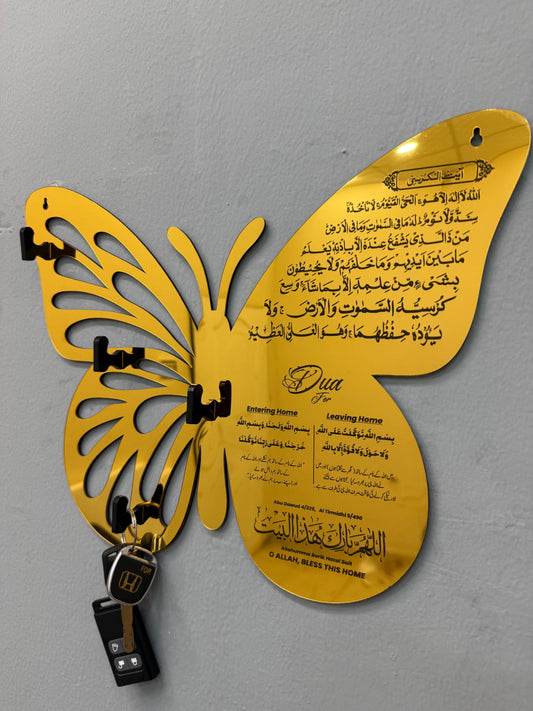 آيت الكرسي
اللهُ لَا إِلٰهَ إِلَّا هُوَ الْحَيُّ الْقَيُّوْمُ لَا تَأْخُذُهٗ
سِنَةٌ وَّلَا نَوْمٌ لَهٗ مَا فِي السَّمٰوٰتِ وَمَا فِي الْاَرْضِ
مَنْ ذَا الَّذِيْ يَشْفَعُ عِنْدَهٗ اِلَّا بِاِذْنِهٖ يَعْلَمُ
مَا بَيْنَ اَيْدِيْهِمْ وَمَا خَلْفَهُمْ وَلَا يُحِيْطُوْنَ
بِشَيْءٍ مِّنْ عِلْمِهٖ اِلَّا بِمَا شَاءَ وَسِعَ
كُرْسِيُّهُ السَّمٰوٰتِ وَالْاَرْضَ وَلَا
يَؤُدُهٗ حِفْظُهُمَا وَهُوَ الْعَلِيُّ الْعَظِيْمُ
Dua
For
Entering Home
بِسْمِ اللّٰهِ وَلَجْنَا، وَبِسْمِ اللّٰهِ
خَرَجْنَا، وَعَلٰى رَبِّنَا تَوَكَّلْنَا
Leaving Home
بِسْمِ اللّٰهِ تَوَكَّلْتُ عَلَى اللّٰهِ
وَلَا حَوْلَ وَلَا قُوَّةَ اِلَّا بِاللّٰهِ
Abu Dawud 4/325, Al Tirmidhi 5/490
اللهم بارك هذا البيت
Allahumma Barik Hazal Bait
O ALLAH, BLESS THIS HOME
FOR